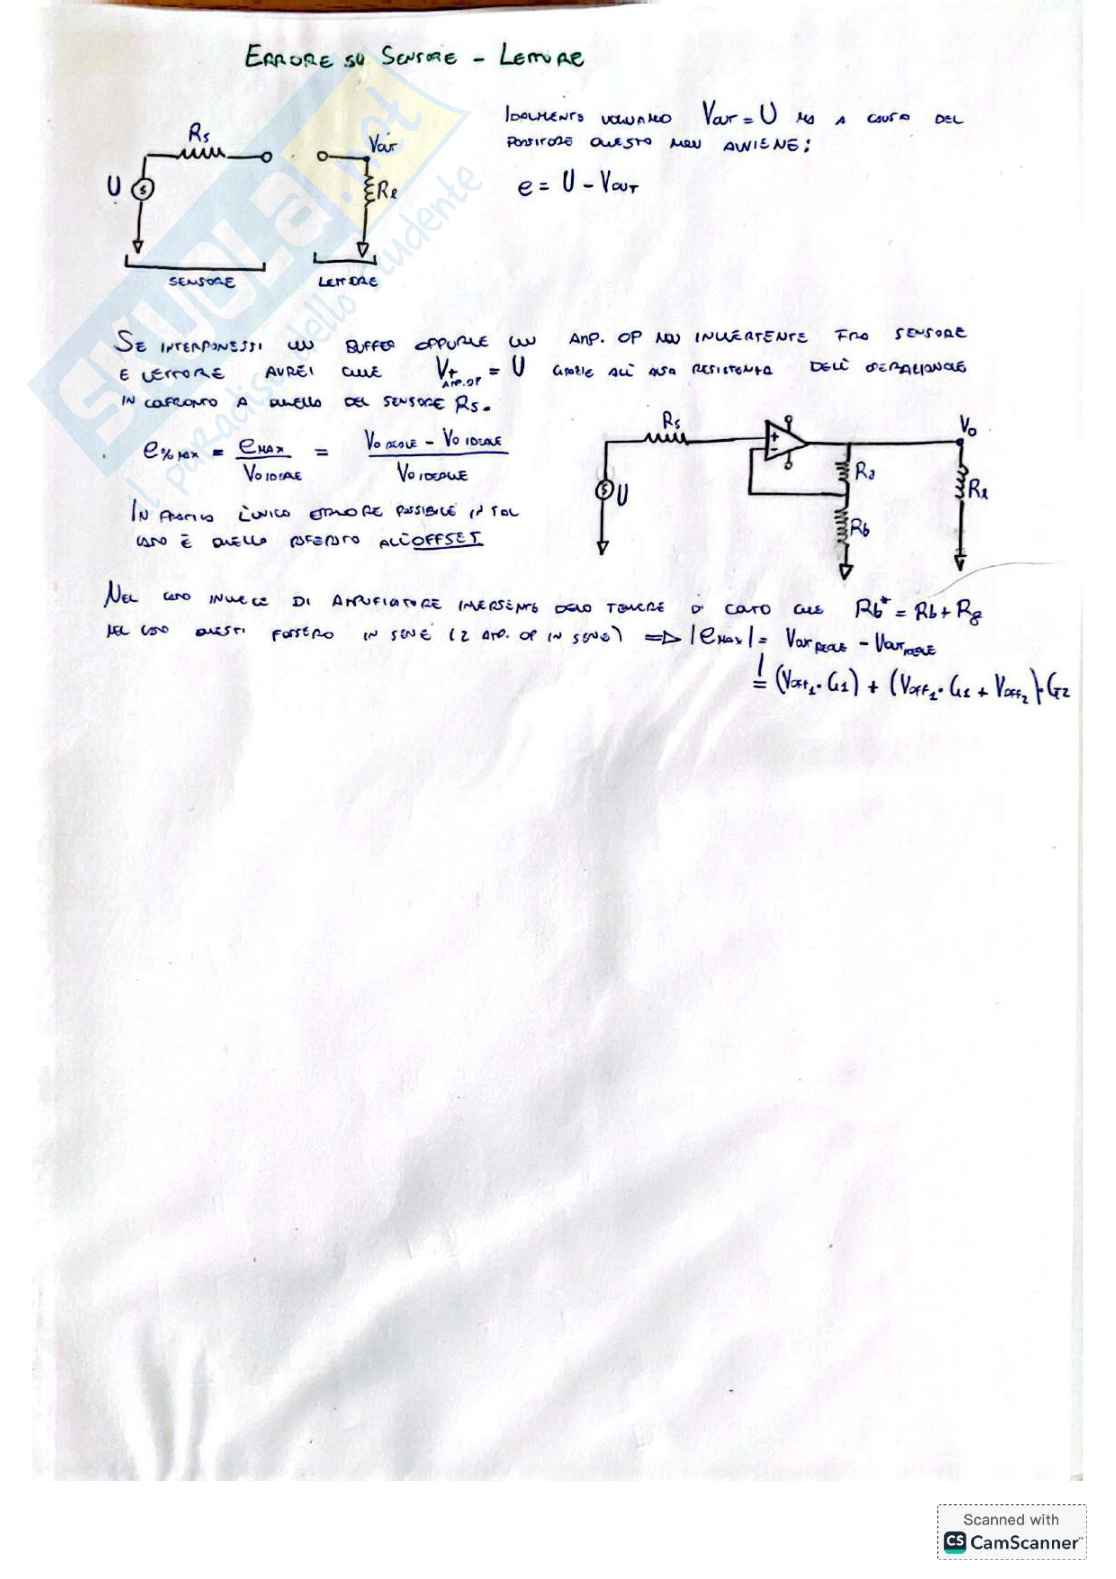 ERRORE SU SENSORE - LETTORE
IDEALMENTE VOLEVAMO Vout = U MA A CAUSA DEL
PARTITORE QUESTO NON AVVIENE:
e = U - VOUT
Rs
U
Vout
Rl
SENSORE
LETTORE
SE INTERPONESSI UN BUFFER OPPURE UN AMP. OP NON INVERTENTE FRA SENSORE
E LETTORE AVREI CHE V+ AMP.OP = U GRAZIE ALL' ALTA RESISTENZA DELL' OPERAZIONALE
IN CONFRONTO A QUELLO DEL SENSORE Rs.
e%MAX = eMAX / Vo IDEALE = Vo REALE - Vo IDEALE / Vo IDEALE
IN PRATICA L'UNICO ERRORE POSSIBILE IN TAL
CASO È QUELLO RIFERITO ALL'OFFSET
Rs
U
+
-
Ra
Rb
Vo
Rl
NEL CASO INVECE DI AMPLIFICATORE INVERTENTE DEVO TENERE DI CONTO CHE Rb* = Rb + Rg
NEL CASO QUESTI FOSSERO IN SERIE (2 AMP. OP IN SERIE) => |eMAX| = Vout REALE - Vout IDEALE
= (VOFF1 · G1) + (VOFF1 · G1 + VOFF2) · G2
SKUOLA.net
il paradiso dello studente
Scanned with
CS CamScanner